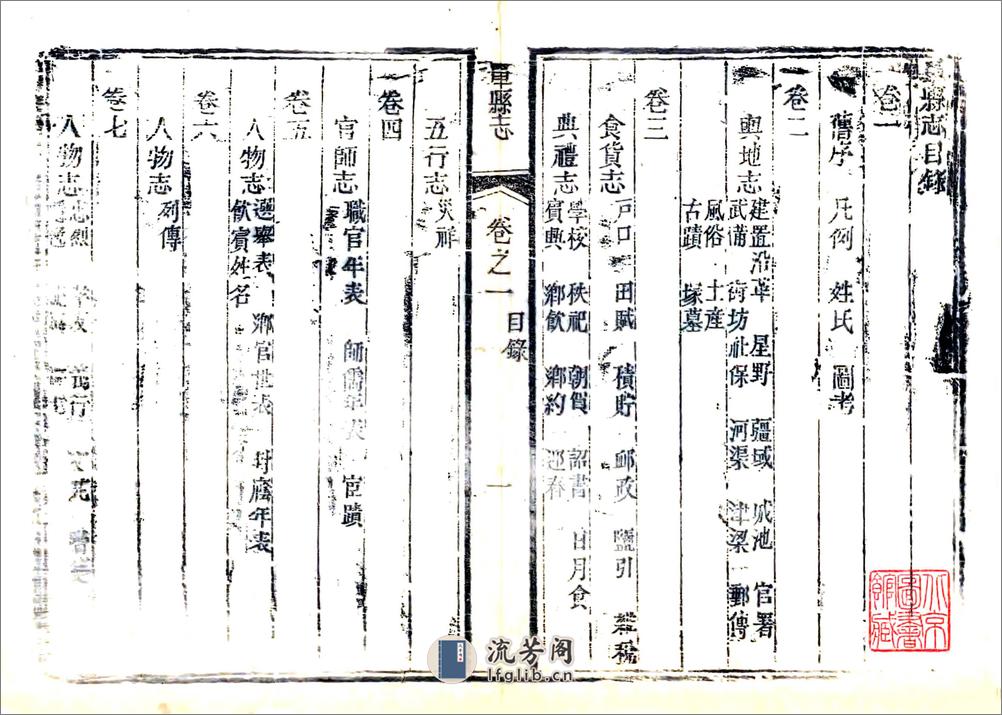 縣志目錄
卷一
舊序 凡例 姓氏 圖考
卷二
輿地志 建置沿革 星野 疆域 城池 官署
武備 街坊 社保 河渠 津梁 郵傳
風俗 土產
古蹟 塚墓
卷三
食貨志 戶口 田賦 積貯 郵政 鹽引 雜稅
典禮志 學校 秩祀 朝賀 詔書 日月食
賓興 鄉飲 鄉約 迎春
縣志 卷之一 目錄 一
五行志 災祥
卷四
官師志 職官年表 師儒年表 宦蹟
卷五
人物志 選舉表 鄉官世表 封廕年表
飲賓姓名
卷六
人物志 列傳
卷七
人物志 忠烈 孝友
北京圖書館藏
流芳阁
lfglib.cn